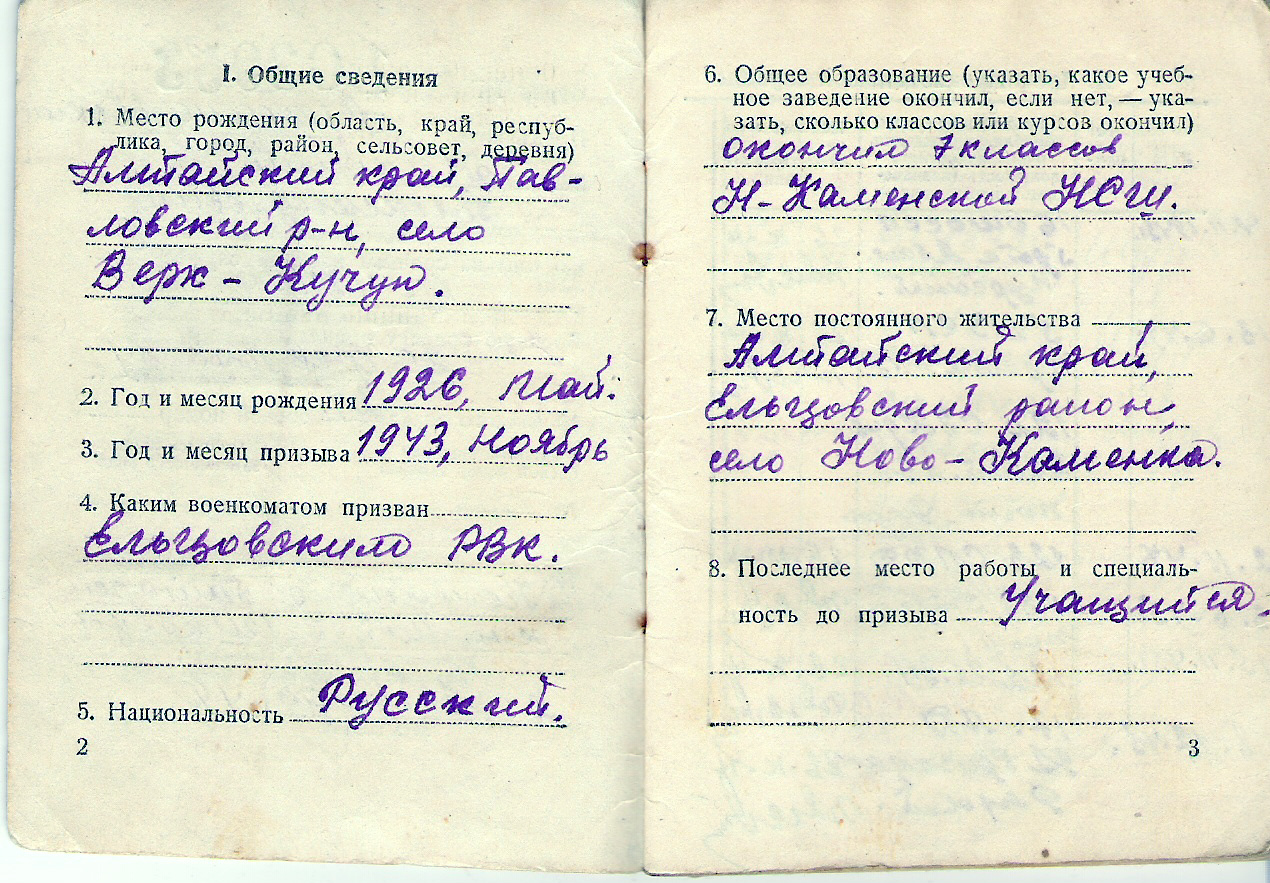 I. Общие сведения
1. Место рождения (область, край, респуб-
лика, город, район, сельсовет, деревня)
Алтайский край, Пав-
ловский р-н, село
Верх - Кучук.
2. Год и месяц рождения 1926, Май.
3. Год и месяц призыва 1943, Ноябрь
4. Каким военкоматом призван
Ельцовским РВК.
5. Национальность Русский.
2
6. Общее образование (указать, какое учеб-
ное заведение окончил, если нет, — ука-
зать, сколько классов или курсов окончил)
окончил 7 классов
Н-Каменской НСШ.
7. Место постоянного жительства
Алтайский край,
Ельцовский район,
село Ново - Каменка.
8. Последнее место работы и специаль-
ность до призыва Учащийся.
3